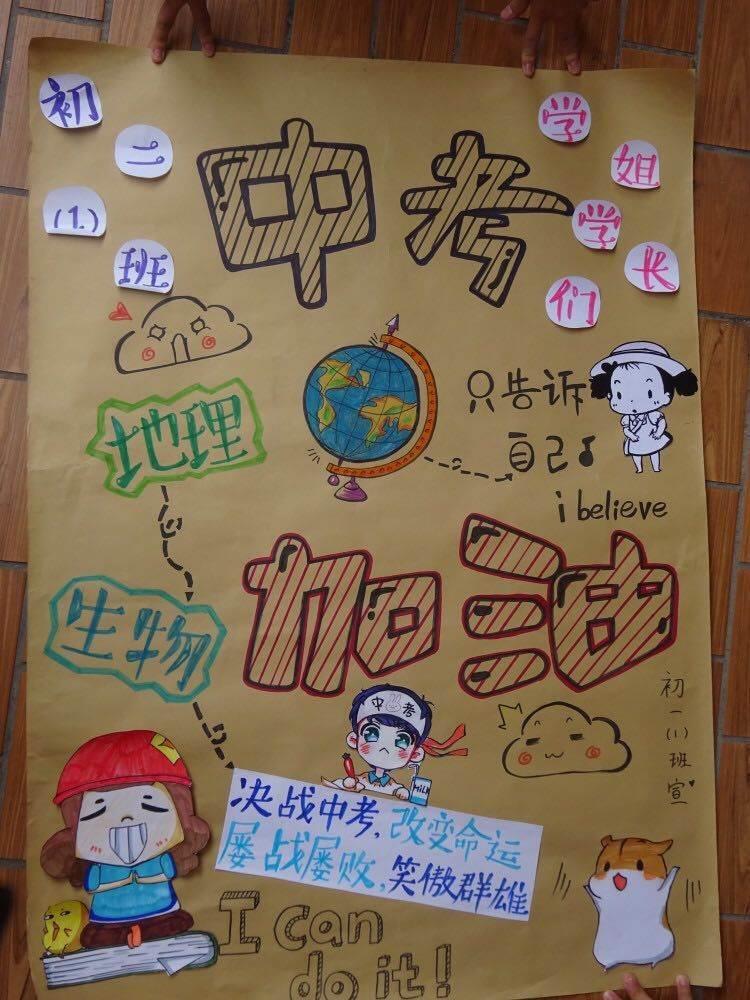 初二(1.)班
中考
学姐学长们
地理
只告诉
自己
i believe
生物
加油
初一(1)班宣
中考
MILK
决战中考,改变命运
屡战屡败,笑傲群雄
I can
do it!